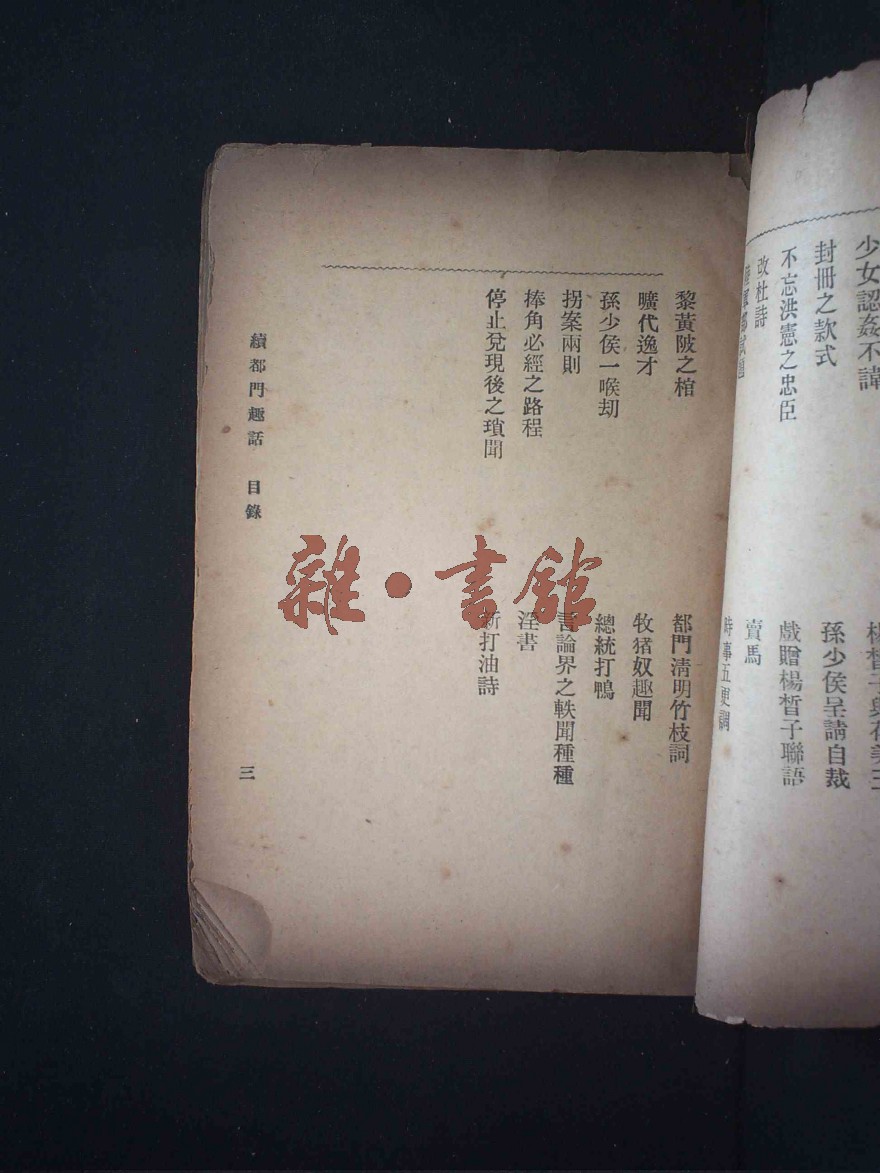 少女認姦不諱
封冊之款式
孫少侯呈請自裁
不忘洪憲之忠臣
戲贈楊皙子聯語
改杜詩
賣馬
時事五更調
黎黃陂之棺
都門清明竹枝詞
曠代逸才
牧猪奴趣聞
孫少侯一喉刧
總統打鴨
拐案兩則
言論界之軼聞種種
捧角必經之路程
淫書
停止兌現後之瑣聞
新打油詩
續都門趣話 目錄
三
雜·書館